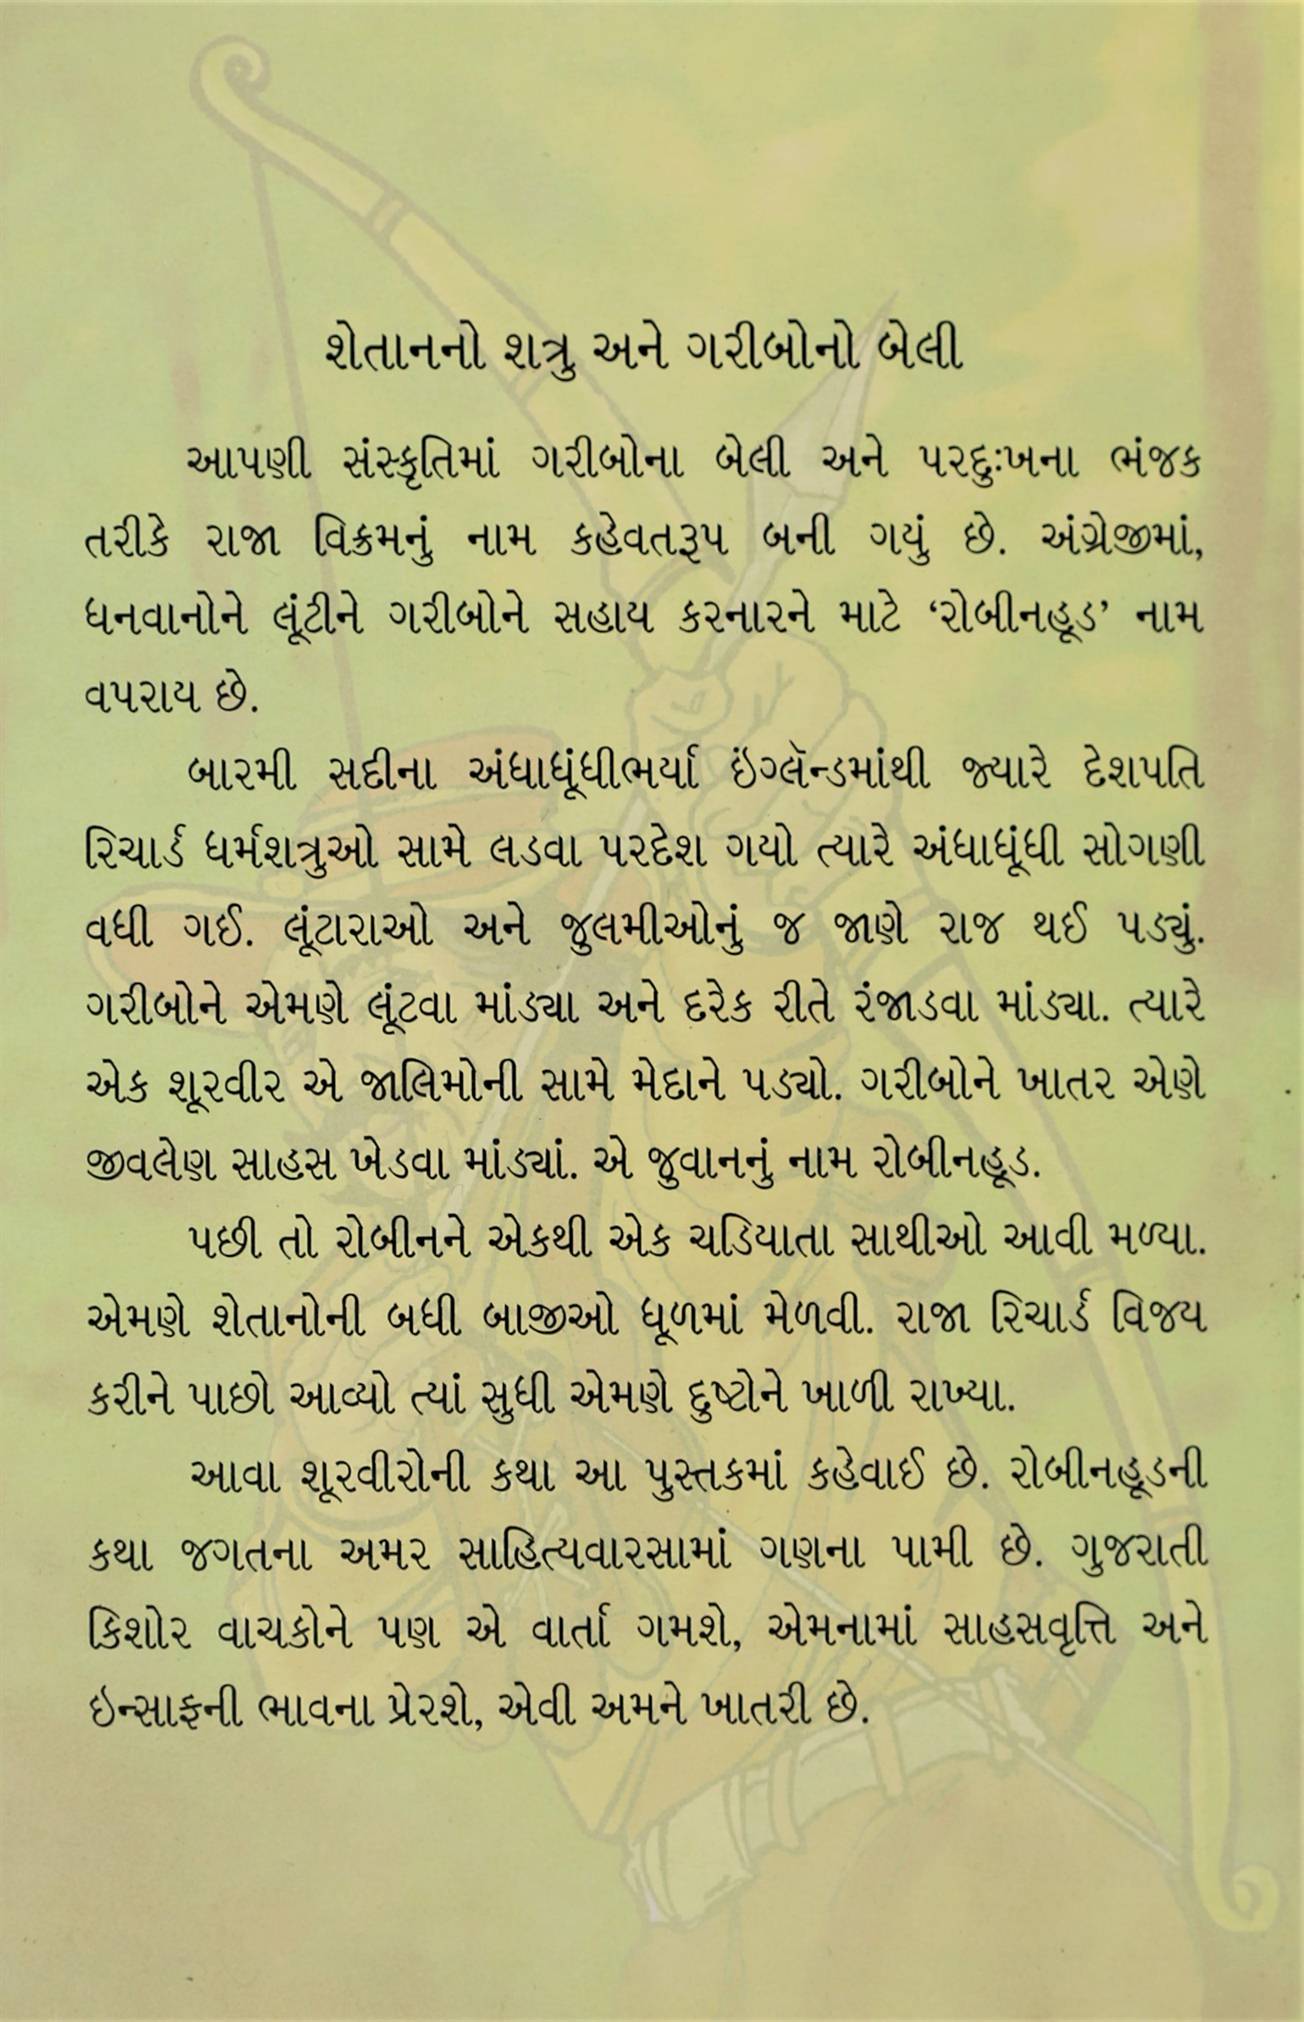 શેતાનનો શત્રુ અને ગરીબોનો બેલી
આપણી સંસ્કૃતિમાં ગરીબોના બેલી અને પરદુઃખના ભંજક
તરીકે રાજા વિક્રમનું નામ કહેવતરૂપ બની ગયું છે. અંગ્રેજીમાં,
ધનવાનોને લૂંટીને ગરીબોને સહાય કરનારને માટે ‘રોબીનહૂડ’ નામ
વપરાય છે.
બારમી સદીના અંધાધૂંધીભર્યા ઇંગ્લૅન્ડમાંથી જ્યારે દેશપતિ
રિચાર્ડ ધર્મશત્રુઓ સામે લડવા પરદેશ ગયો ત્યારે અંધાધૂંધી સોગણી
વધી ગઈ. લૂંટારાઓ અને જુલમીઓનું જ જાણે રાજ થઈ પડ્યું.
ગરીબોને એમણે લૂંટવા માંડ્યા અને દરેક રીતે રંજાડવા માંડ્યા. ત્યારે
એક શૂરવીર એ જાલિમોની સામે મેદાને પડ્યો. ગરીબોને ખાતર એણે
જીવલેણ સાહસ ખેડવા માંડ્યાં. એ જુવાનનું નામ રોબીનહૂડ.
પછી તો રોબીનને એકથી એક ચડિયાતા સાથીઓ આવી મળ્યા.
એમણે શેતાનોની બધી બાજીઓ ધૂળમાં મેળવી. રાજા રિચાર્ડ વિજય
કરીને પાછો આવ્યો ત્યાં સુધી એમણે દુષ્ટોને ખાળી રાખ્યા.
આવા શૂરવીરોની કથા આ પુસ્તકમાં કહેવાઈ છે. રોબીનહૂડની
કથા જગતના અમર સાહિત્યવારસામાં ગણના પામી છે. ગુજરાતી
કિશોર વાચકોને પણ એ વાર્તા ગમશે, એમનામાં સાહસવૃત્તિ અને
ઇન્સાફની ભાવના પ્રેરશે, એવી અમને ખાતરી છે.